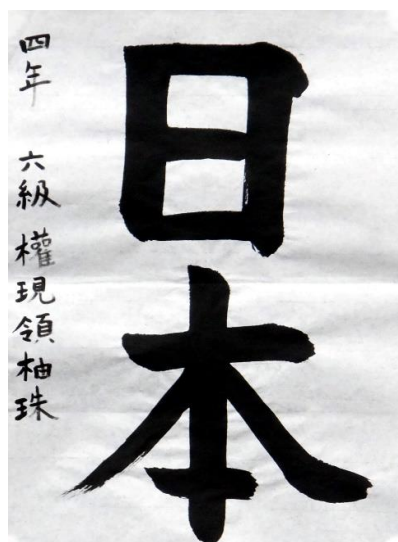 日本
四年 六級 權現領柚珠